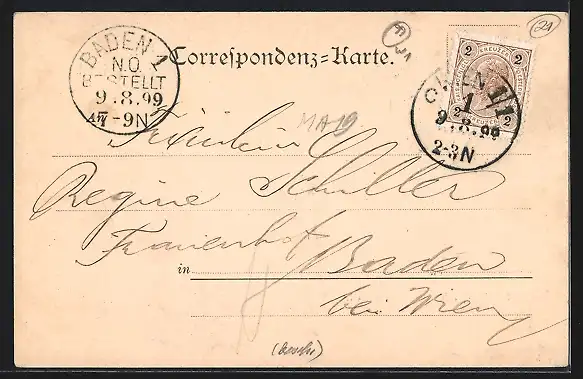 BADEN 1
N.Ö.
BESTELLT
9.8.99
-9N
Correspondenz=Karte.
21
2 KREUZER 2
2 2
1/1
9.8.99
2-3N
MA19
Fräulein
Regine Schiller
Frauenhof
in Baden
bei Wien